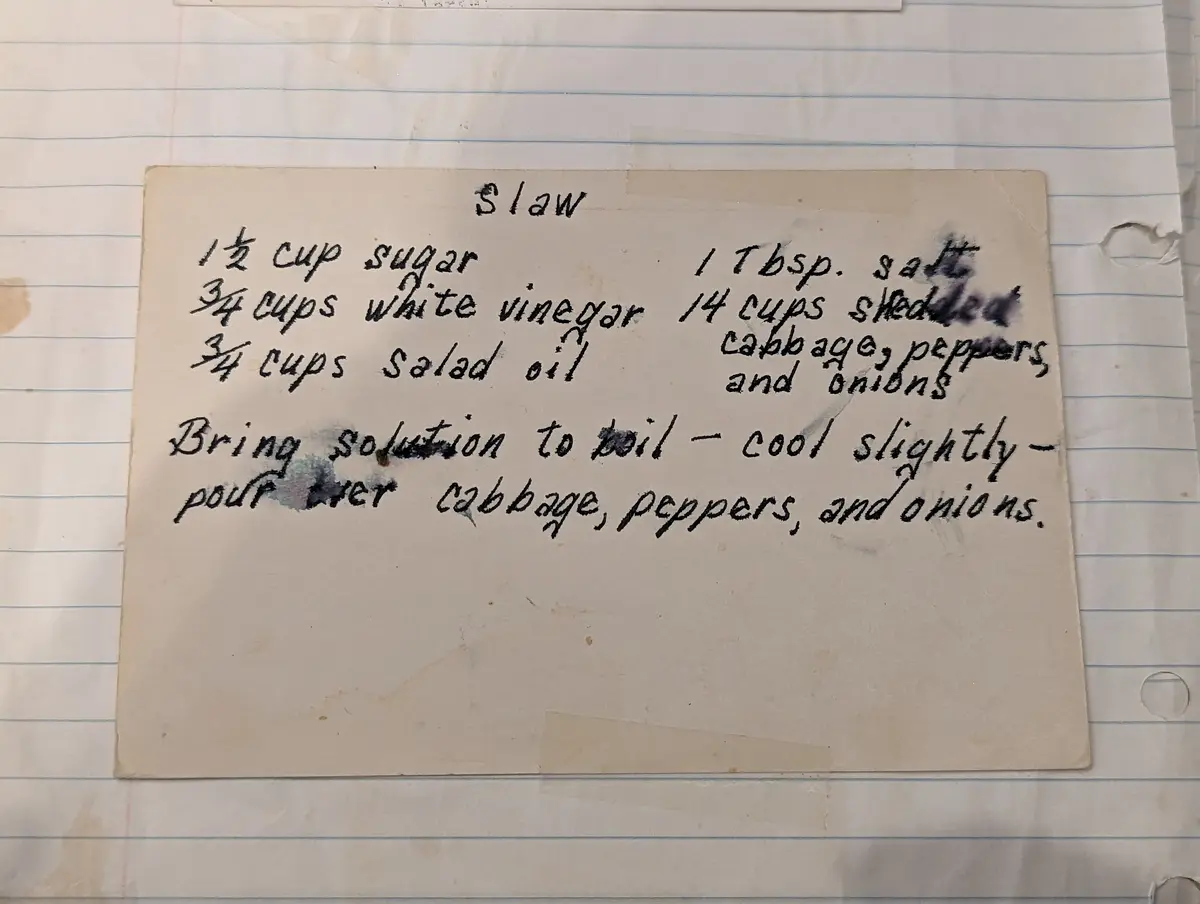 Slaw
1 ½ cup sugar
¾ cups white vinegar
¾ cups salad oil
1 Tbsp. salt
14 cups shedded
cabbage, peppers,
and onions
Bring solution to boil — cool slightly —
pour over cabbage, peppers, and onions.